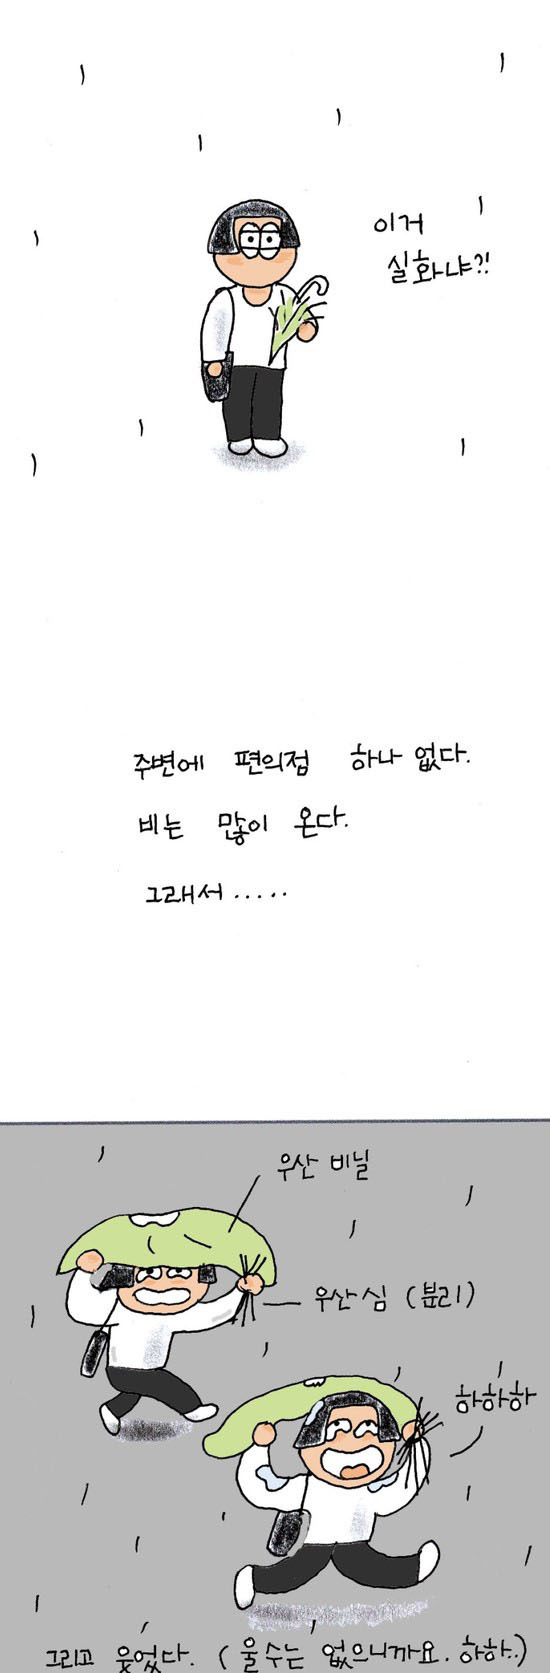 이거
실화냐?!
주변에 편의점 하나 없다.
비는 많이 온다.
그래서.....
우산 비닐
우산심 (분리)
하하하
그리고 웃었다. (울 수는 없으니까요. 하하.)